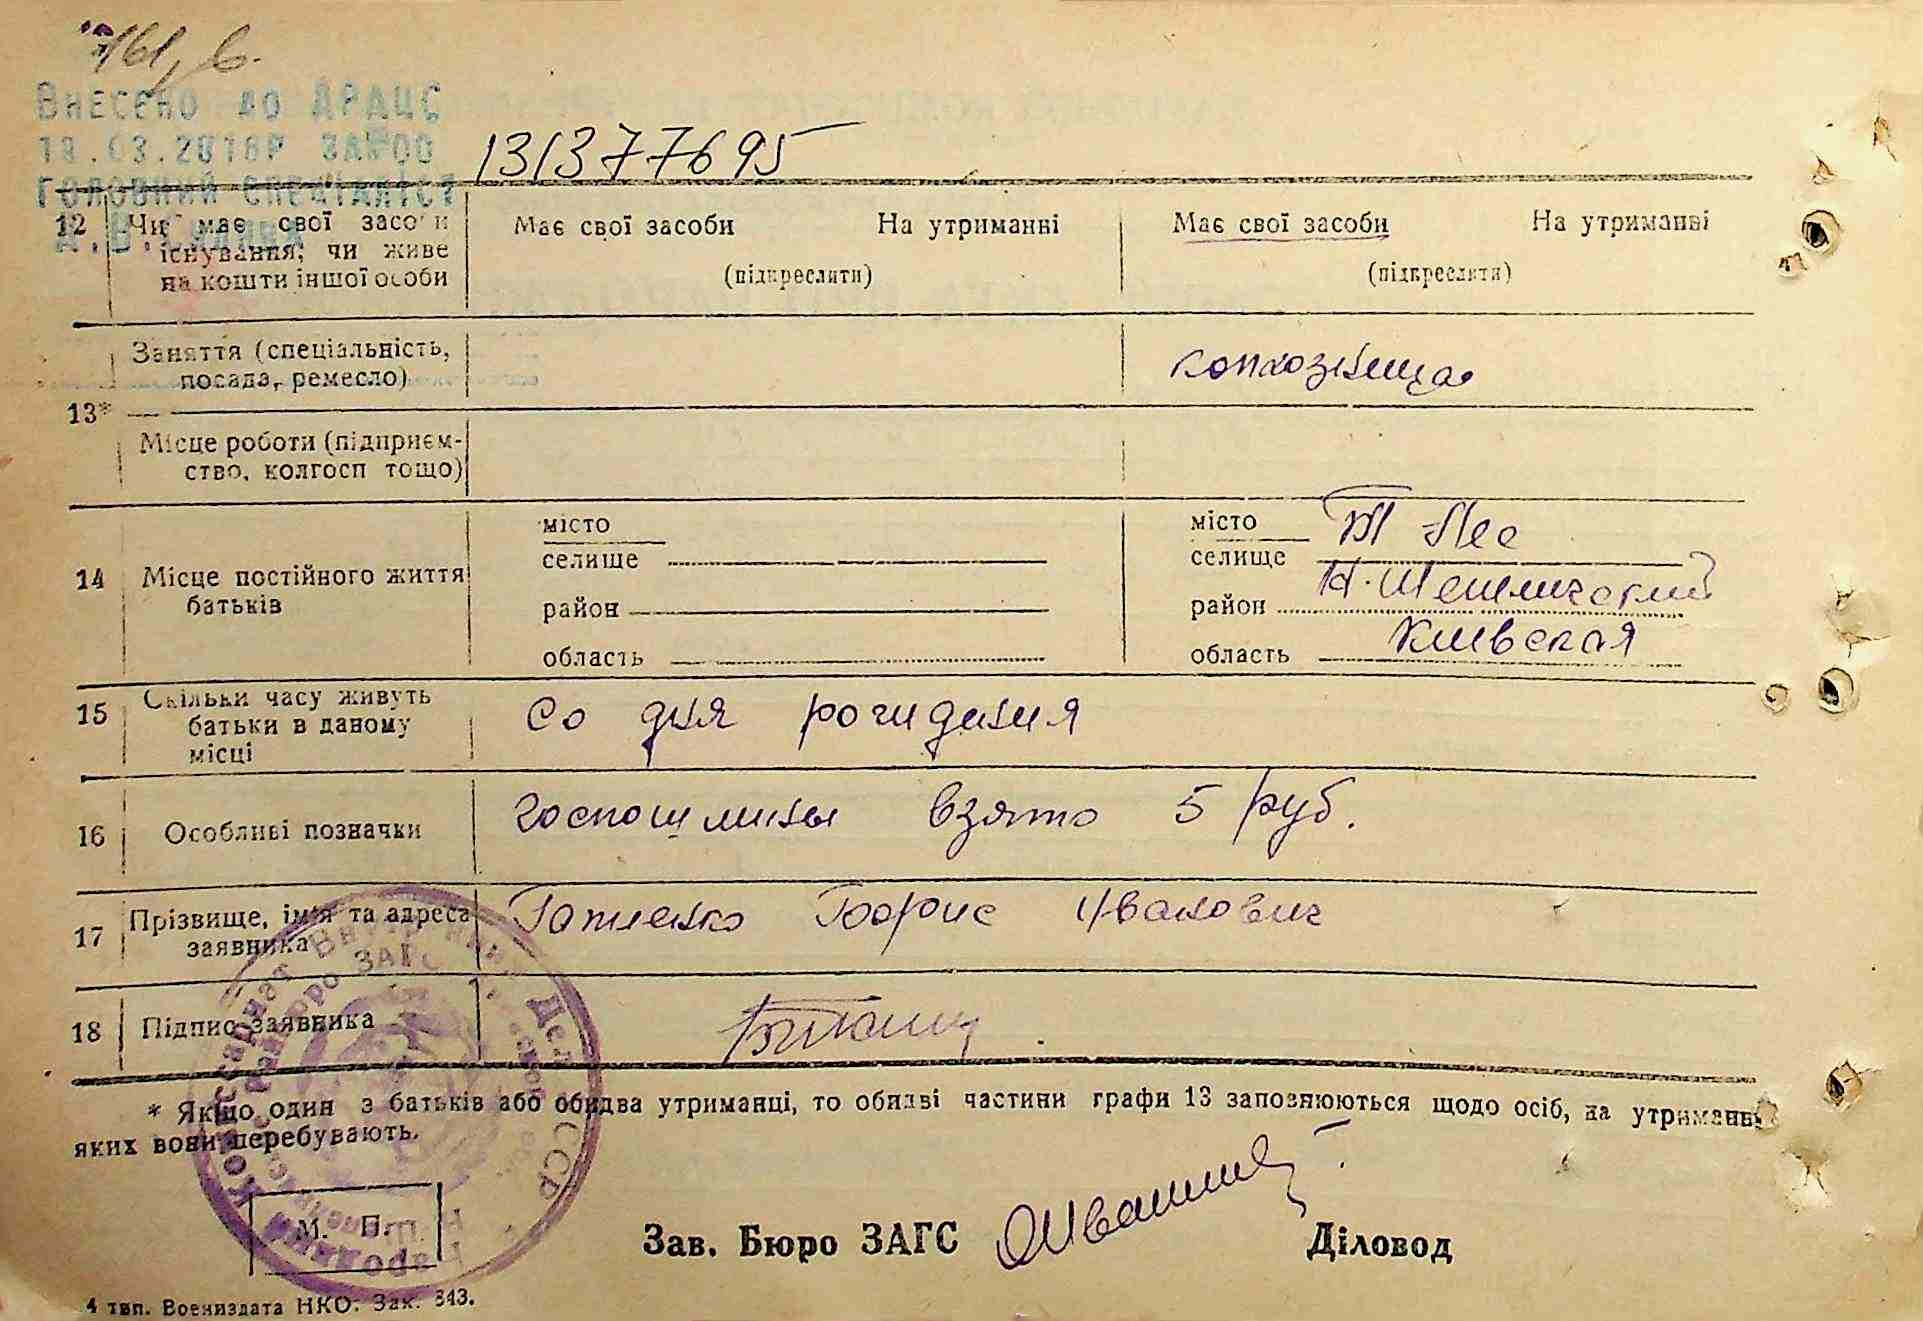 161, б.
Внесено до ДРАЦС
19.03.2018р за №00
Головний спеціаліст
131377695
12 Чи має свої засоби існування, чи живе на кошти іншої особи
Має свої засоби На утриманні
(підкреслити)
Має свої засоби На утриманні
(підкреслити)
13*
Заняття (спеціальність,
посада, ремесло)
колхозница
Місце роботи (підприєм-
ство, колгосп тощо)
14 Місце постійного життя
батьків
місто
селище
район
область
місто
селище
район
область Киевская
15 Скільки часу живуть
батьки в даному
місці
Со дня рождения
16 Особливі позначки
госпошлины взято 5 руб.
17 Прізвище, ім'я та адреса
заявника
Борис Иванович
18 Підпис заявника
* Якщо один з батьків або обидва утриманці, то обидві частини графи 13 заповнюються щодо осіб, на утриманні
яких вони перебувають.
М. П.
Зав. Бюро ЗАГС
Діловод
4 тип. Воениздата НКО. Зак. 343.